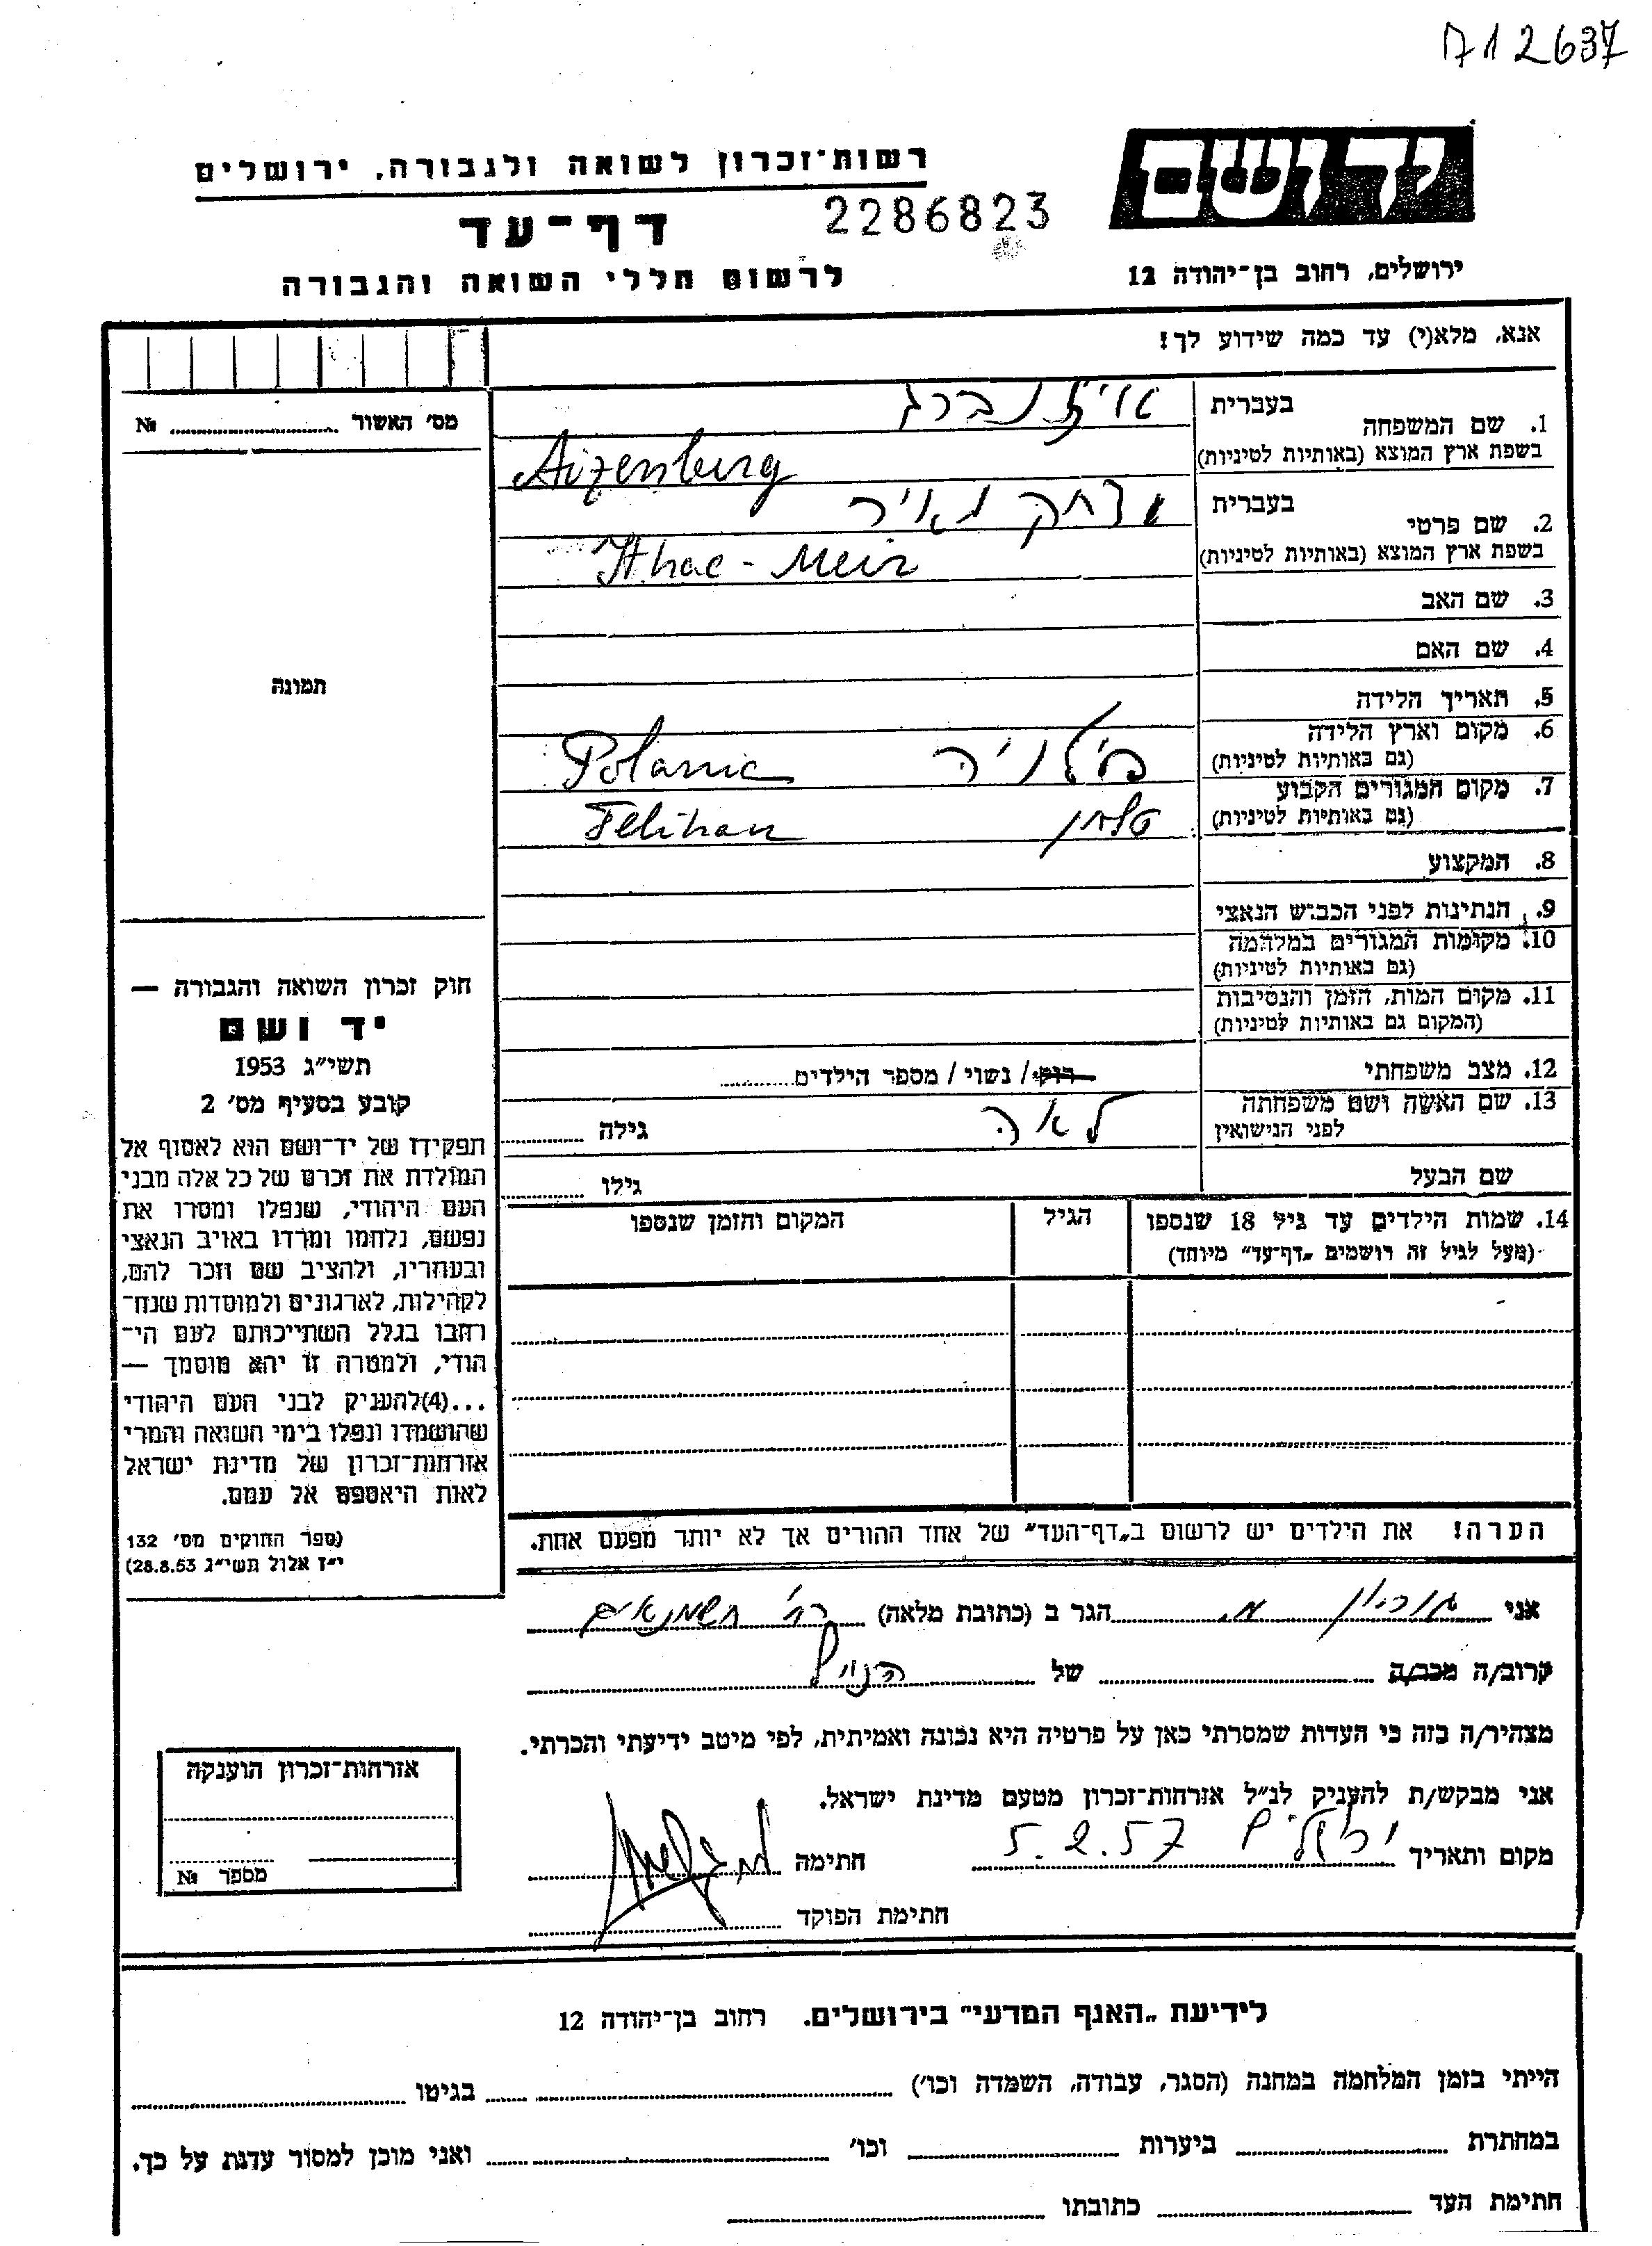 712637
יד ושם
רשות־זכרון לשואה ולגבורה, ירושלים
2286823
דף־עד
ירושלים, רחוב בן־יהודה 12
לרשום חללי השואה והגבורה
אנא, מלא(י) עד כמה שידוע לך!
מס׳ האשור № 
1. שם המשפחה
בעברית
אייזנברג
בשפת ארץ המוצא (באותיות לטיניות)
Aizenberg
2. שם פרטי
בעברית
יצחק מאיר
בשפת ארץ המוצא (באותיות לטיניות)
Ithac - Meir
3. שם האב
4. שם האם
תמונה
5. תאריך הלידה
6. מקום וארץ הלידה
(גם באותיות לטיניות)
פולניה Polania
7. מקום המגורים הקבוע
(גם באותיות לטיניות)
8. המקצוע
9. הנתינות לפני הכבוש הנאצי
10. מקומות המגורים במלחמה
(גם באותיות לטיניות)
11. מקום המות, הזמן והנסיבות
(המקום גם באותיות לטיניות)
12. מצב משפחתי רוק/ נשוי/ מספר הילדים
13. שם האשה ושם משפחתה
לפני הנישואין
לאה גילה
שם הבעל גילו
14. שמות הילדים עד גיל 18 שנספו
(מעל לגיל זה רושמים „דף־עד״ מיוחד)
הגיל
המקום והזמן שנספו
חוק זכרון השואה והגבורה —
יד ושם
תשי״ג 1953
קובע בסעיף מס׳ 2
תפקידו של יד־ושם הוא לאסוף אל
המולדת את זכרם של כל אלה מבני
העם היהודי, שנפלו ומסרו את
נפשם, נלחמו ומרדו באויב הנאצי
ובעוזריו, ולהציב שם וזכר להם,
לקהילות, לארגונים ולמוסדות שנח־
רבו בגלל השתייכותם לעם הי־
הודי, ולמטרה זו יהא מוסמך —
...(4)להעניק לבני העם היהודי
שהושמדו ונפלו בימי השואה והמרי
אזרחות־זכרון של מדינת ישראל
לאות היאספם אל עמם.
(ספר החוקים מס׳ 132
י״ז אלול תשי״ג 28.8.53)
הערה! את הילדים יש לרשום ב„דף־העד״ של אחד ההורים אך לא יותר מפעם אחת.
אני גוריון מ. הגר ב (כתובת מלאה) רח׳ חשמונאים
קרוב/ה מכר/ה של הנ״ל
מצהיר/ה בזה כי העדות שמסרתי כאן על פרטיה היא נכונה ואמיתית, לפי מיטב ידיעתי והכרתי.
אני מבקש/ת להעניק לנ״ל אזרחות־זכרון מטעם מדינת ישראל.
מקום ותאריך ירושלים 5.2.57 חתימה
חתימת הפוקד
אזרחות־זכרון הוענקה
מספר №
לידיעת „האגף המדעי״ בירושלים. רחוב בן־יהודה 12
הייתי בזמן המלחמה במחנה (הסגר, עבודה, השמדה וכו׳) בגיטו
במחתרת ביערות וכו׳ ואני מוכן למסור עדות על כך.
חתימת העד כתובתו